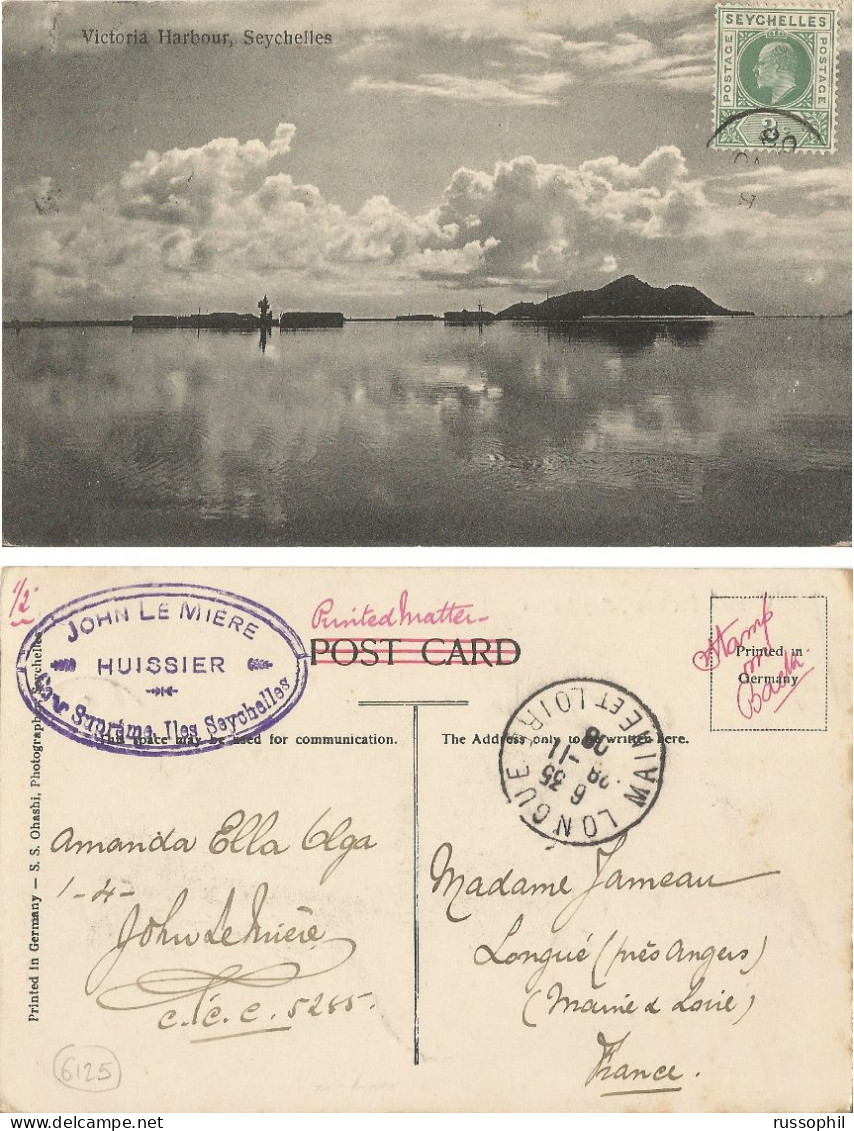 Victoria Harbour, Seychelles
SEYCHELLES
POSTAGE
POSTAGE
1/2
JOHN LE MIÈRE
HUISSIER
Cour Suprême, Iles Seychelles
Printed Matter
POST CARD
Stamp
on
Back
Printed in
Germany
This space may be used for communication.
The Address only to be written here.
LONGUÉ
MAINE ET LOIRE
6 35
28 -11
08
Printed in Germany — S. S. Ohashi, Photographer, Seychelles
Amanda Ella Olga
1-4-
John Le Mière
C.C.C. 5285.
6125
Madame Jameau
Longué (près Angers)
(Maine & Loire)
France.
russophil